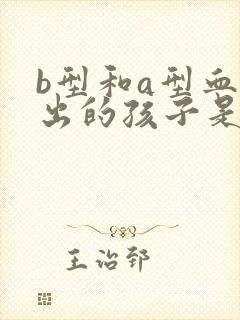 b型和a型血
出的孩子是
王治郅